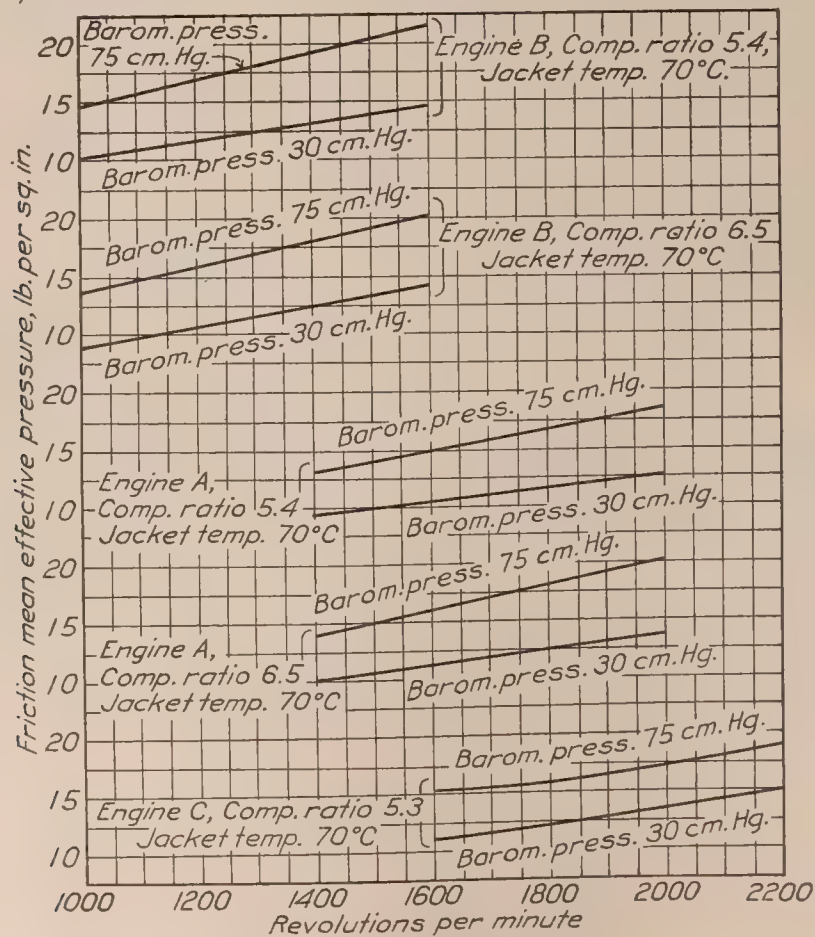 Friction mean effective pressure, lb. per sq. in.
20
15
10
Barom. press.
75 cm. Hg.
Barom. press. 30 cm. Hg.
Engine B, Comp. ratio 5.4,
Jacket temp. 70°C.
20
15
10
Barom. press. 75 cm. Hg.
Barom. press. 30 cm. Hg.
Engine B, Comp. ratio 6.5
Jacket temp. 70°C
20
15
10
Barom. press. 75 cm. Hg.
Engine A,
Comp. ratio 5.4
Jacket temp. 70°C
Barom. press. 30 cm. Hg.
20
15
10
Barom. press. 75 cm. Hg.
Engine A,
Comp. ratio 6.5
Jacket temp. 70°C
Barom. press. 30 cm. Hg.
20
15
10
Barom. press. 75 cm. Hg.
Engine C, Comp. ratio 5.3
Jacket temp. 70°C
Barom. press. 30 cm. Hg.
1000 1200 1400 1600 1800 2000 2200
Revolutions per minute